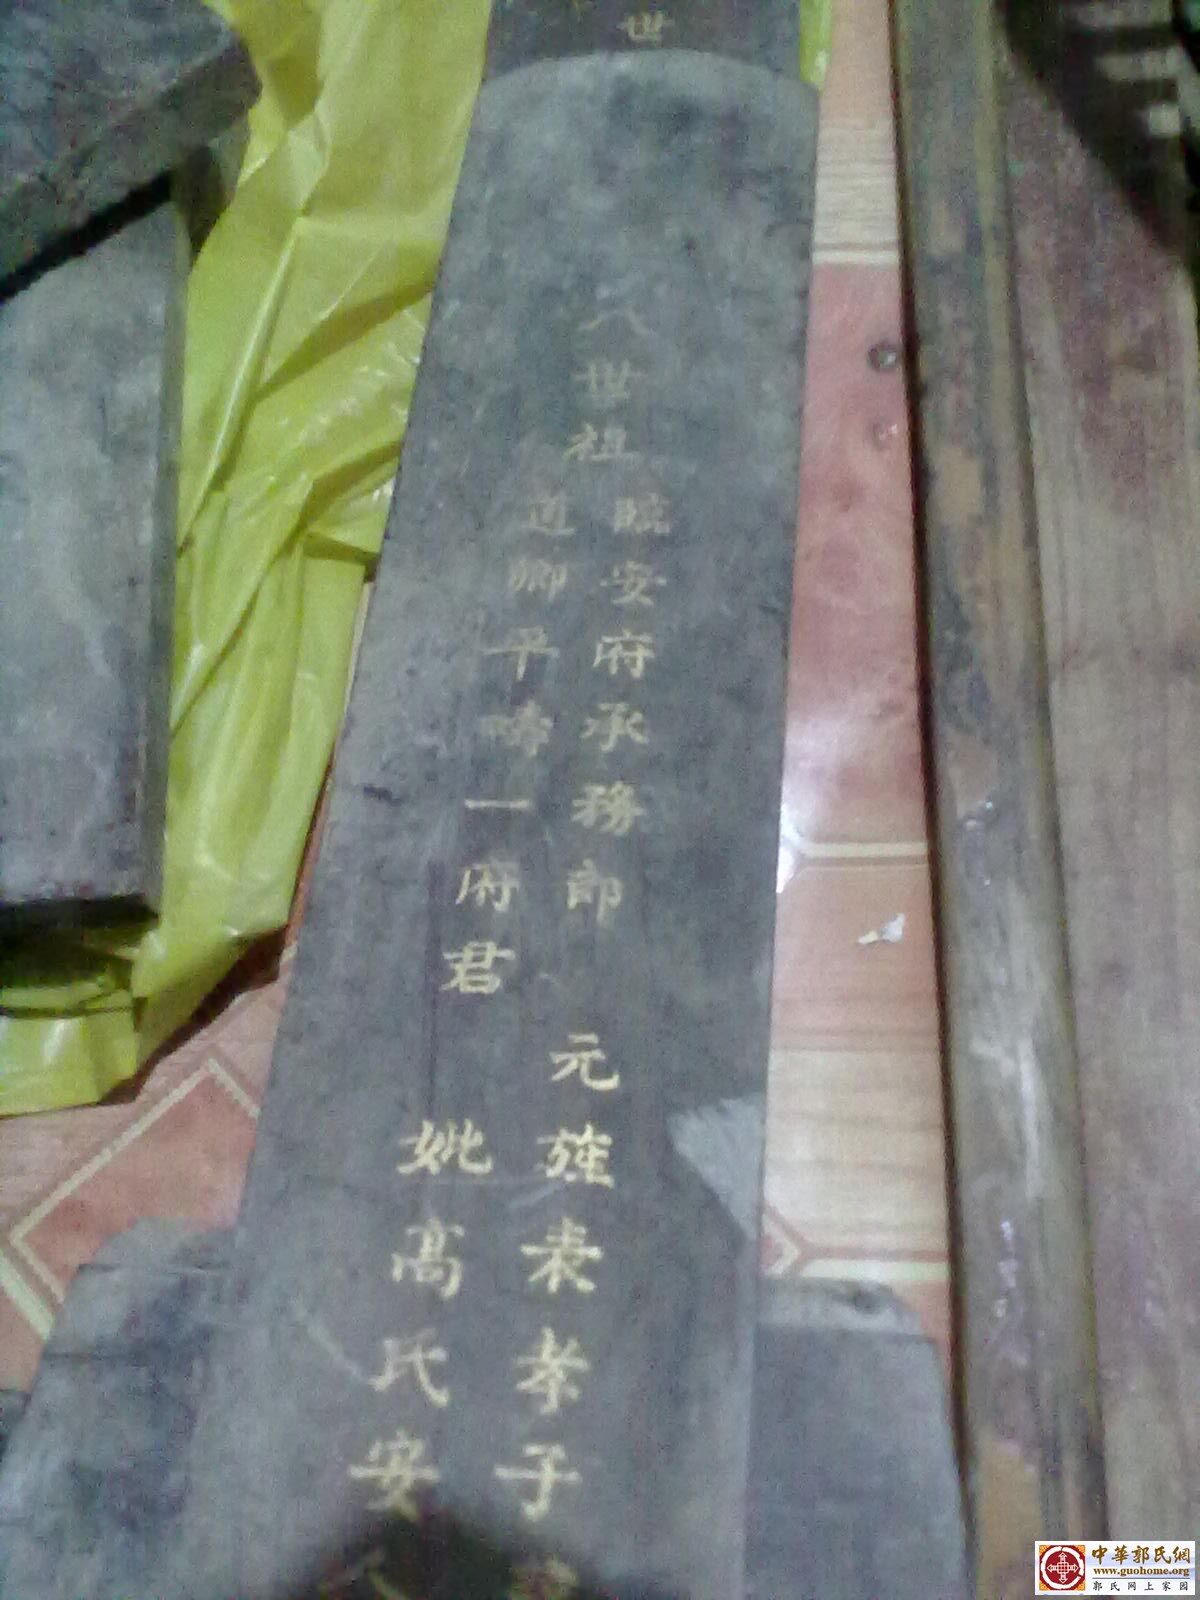 世
八世祖
臨安府承務郎 元旌表孝子
道卿平疇一府君 妣高氏安
中華郭氏網
www.guohome.org
郭氏网上家园